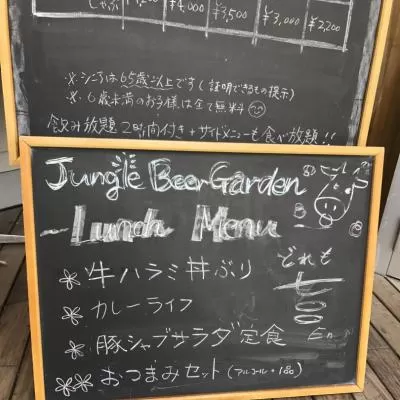 しゃぶ ¥4,000 ¥3,500 ¥3,000 ¥2,200
※シニアは65歳以上です(証明できるもの提示)
※6歳未満のお子様は全て無料
飲み放題2時間付き+サイドメニューも食べ放題!!
Jungle Beer Garden
Lunch Menu
牛ハラミ丼ぶり
どれも
カレーライス
豚シャブサラダ定食
En
おつまみセット(アルコール+1品)